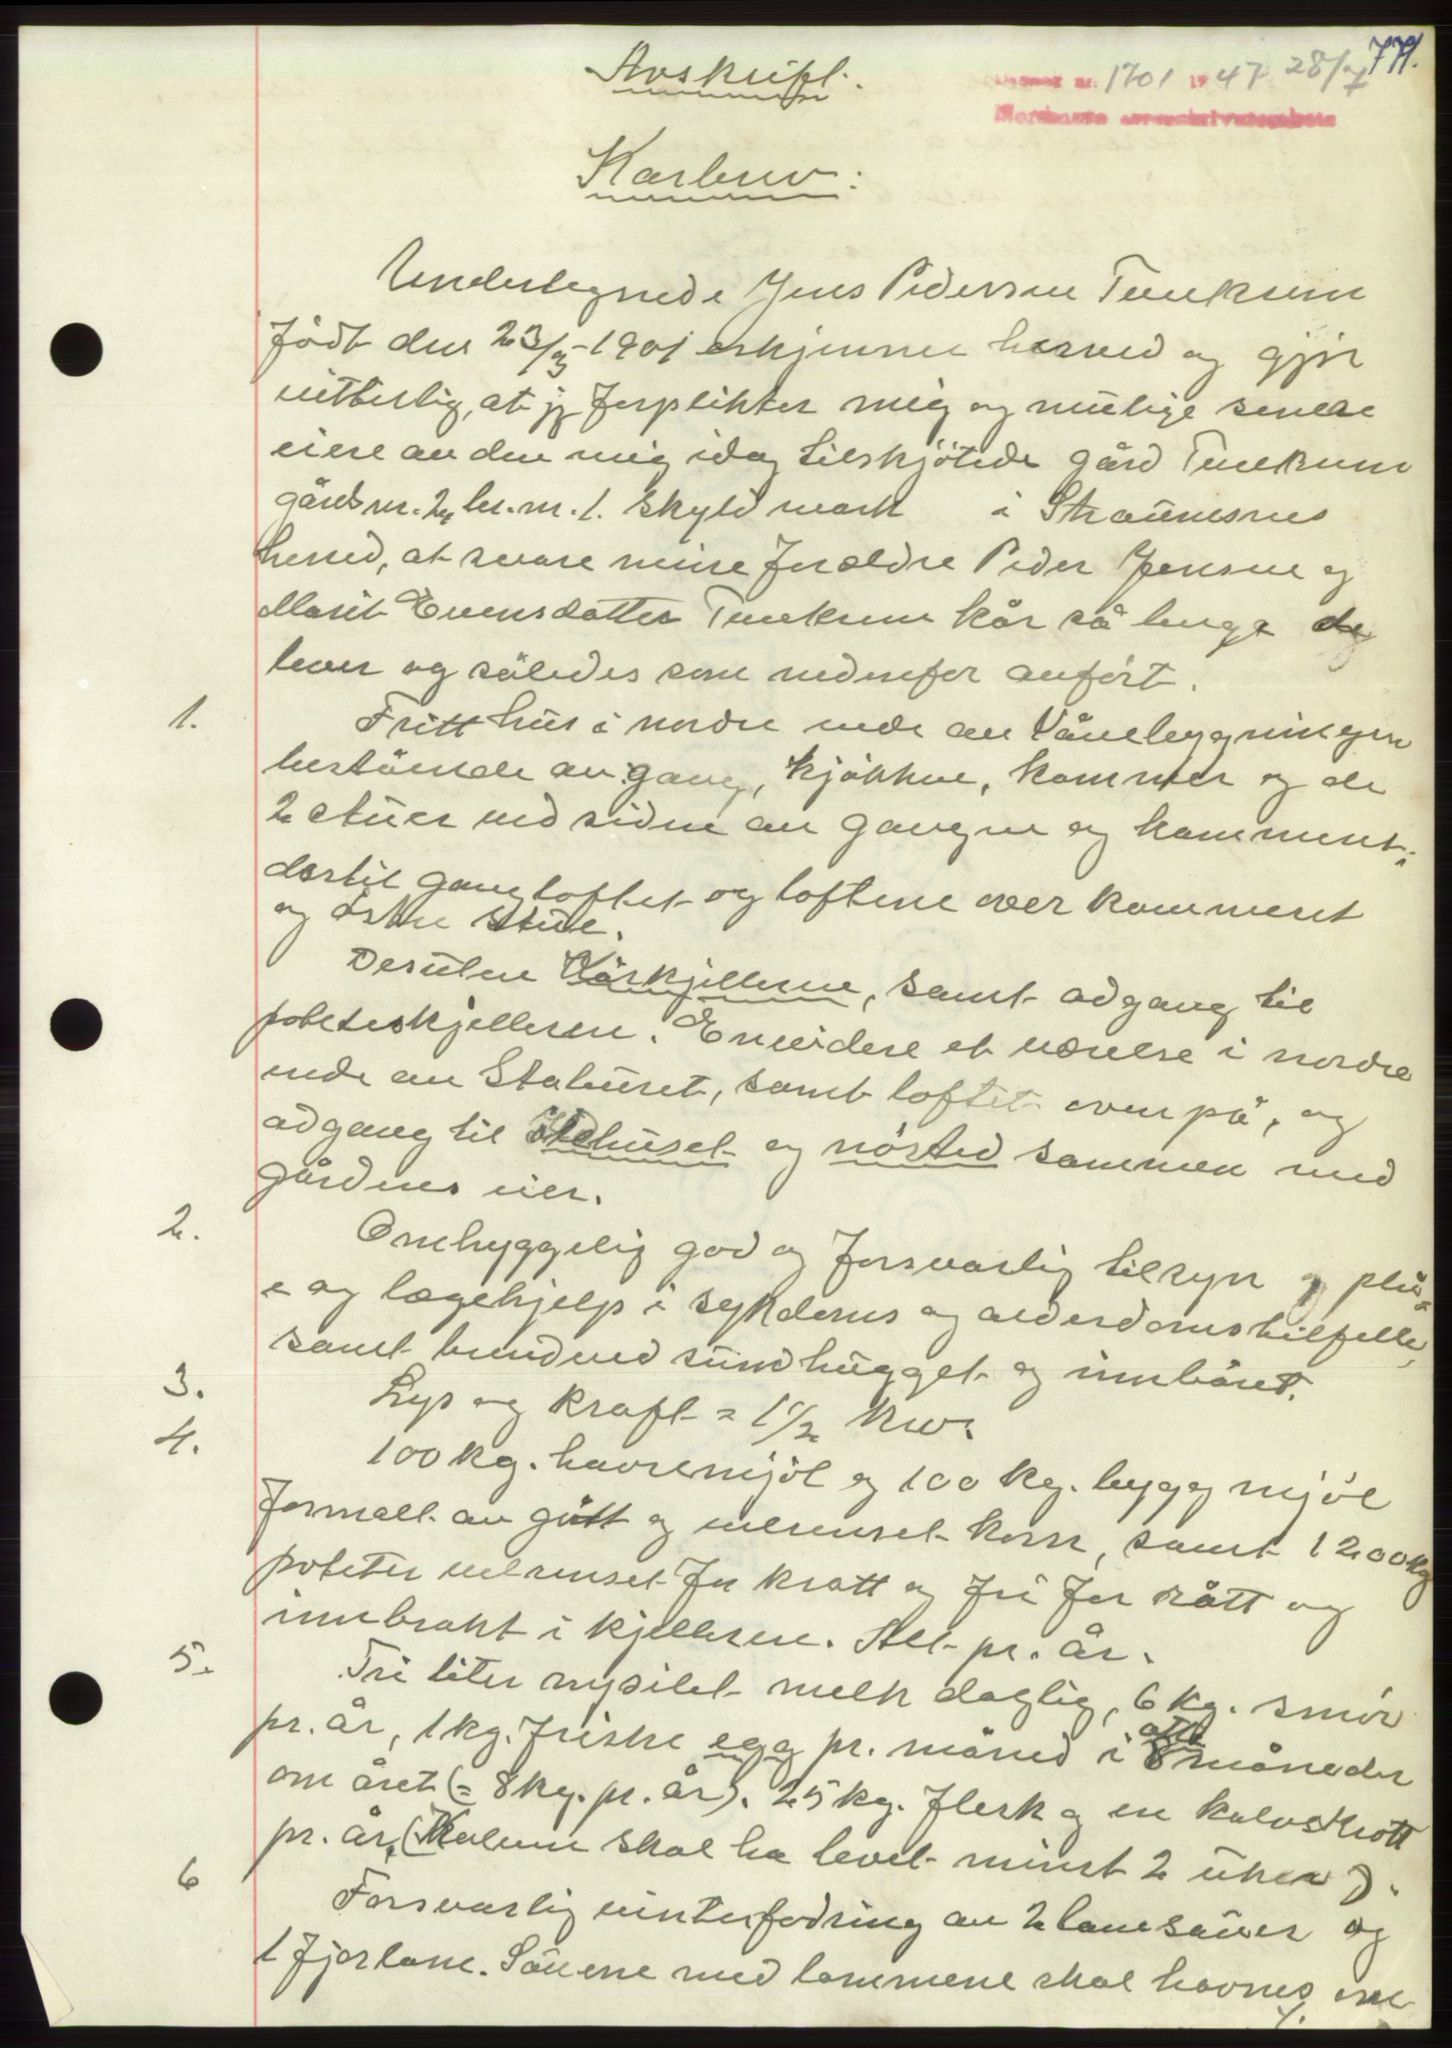 771.
Avskrift.
1701 1947 28/7
Nordmøre sorenskriverembete
Karbrev:
Undertegnede Jens Pedersen Tunksum
født den 23/3-1901 erkjenner herved og gjør
vitterlig, at jeg forplikter mig og mulige senere
eiere av den mig idag tilskjøtede gård
gårdsnr. 24 br.nr. 1. skyld mark i Straumsnes
herred, at svare mine foreldre Peder Jensen og
Marit Evensdatter kår så lenge de
lever og således som nedenfor anført.
1. Fritt hus i nordre ende av Våneb​ygningen
bestående av gang, kjøkken, kammer og de
2 stuer ved siden av gangen og kammeret;
dertil gangloftet og loftene over kammeret
og østre stue.
Desuten Kårkjelleren, samt adgang til
poteteskjelleren. Envidere et værelse i nordre
ende av Staburet, samt loftet oven på, og
adgang til ildhuset og nøsted sammen med
gårdens eier.
2. Omhyggelig god og forsvarlig tilsyn og pleie
e og lægehjelp i sykdoms og alderdomstilfelle,
samt brendved smådhugget og innbåret.
3. Lys og kraft = 1 1/2 kw.
4. 100 kg. havremjøl og 100 kg. byggmjøl
formalt av gått og velrenset korn, samt 1200 kg
poteter velrenset for kratt og fri for rått og
innbrakt i kjelleren. Alt pr. år.
5. Tri liter nysilet melk daglig, 6 kg. smør
pr. år, 1 kg. friske egg pr. måned i 8 åtte måneder
om året (= 8 kg. pr. år). 25 kg. flesk og en kalvskrott
pr. år, (Kalven skal ha levet minst 2 uker).
6 Forsvarlig vinterfodring av 2 lamsauer og
1 fjorlam. Sauene med lammene skal havnes om